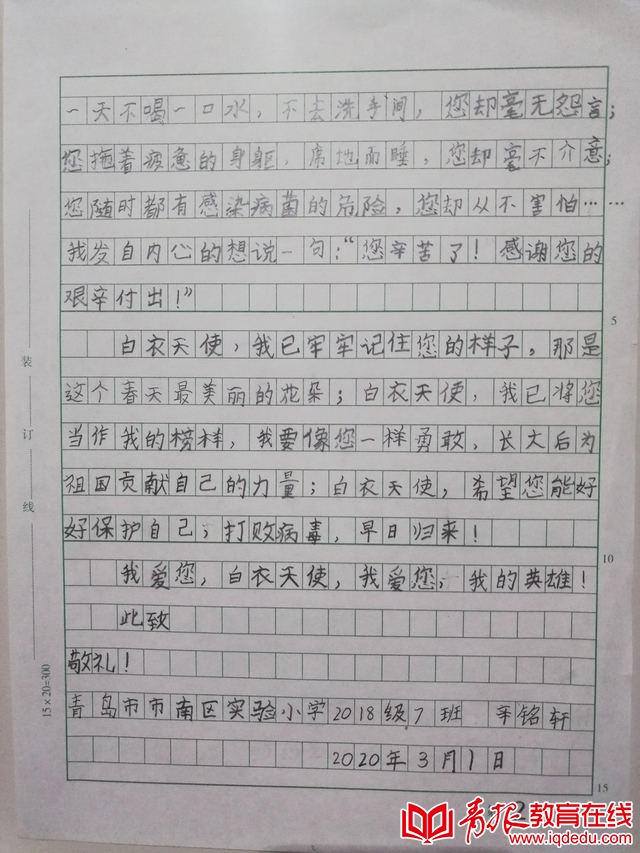 一天不喝一口水，不去洗手间，您却毫无怨言；
您拖着疲惫的身躯，席地而睡，您却毫不介意；
您随时都有感染病菌的危险，您却从不害怕……
我发自内心的想说一句：“您辛苦了！感谢您的
艰辛付出！”
白衣天使，我已牢牢记住您的样子，那是
这个春天最美丽的花朵；白衣天使，我已将您
当作我的榜样，我要像您一样勇敢，长大后为
祖国贡献自己的力量；白衣天使，希望您能好
好保护自己，打败病毒，早日归来！
我爱您，白衣天使，我爱您，我的英雄！
此致
敬礼！
青岛市市南区实验小学2018级7班 辛铭轩
2020年3月1日
装
订
线
15×20=300
5
10
15
2
青报教育在线
www.iqdedu.com